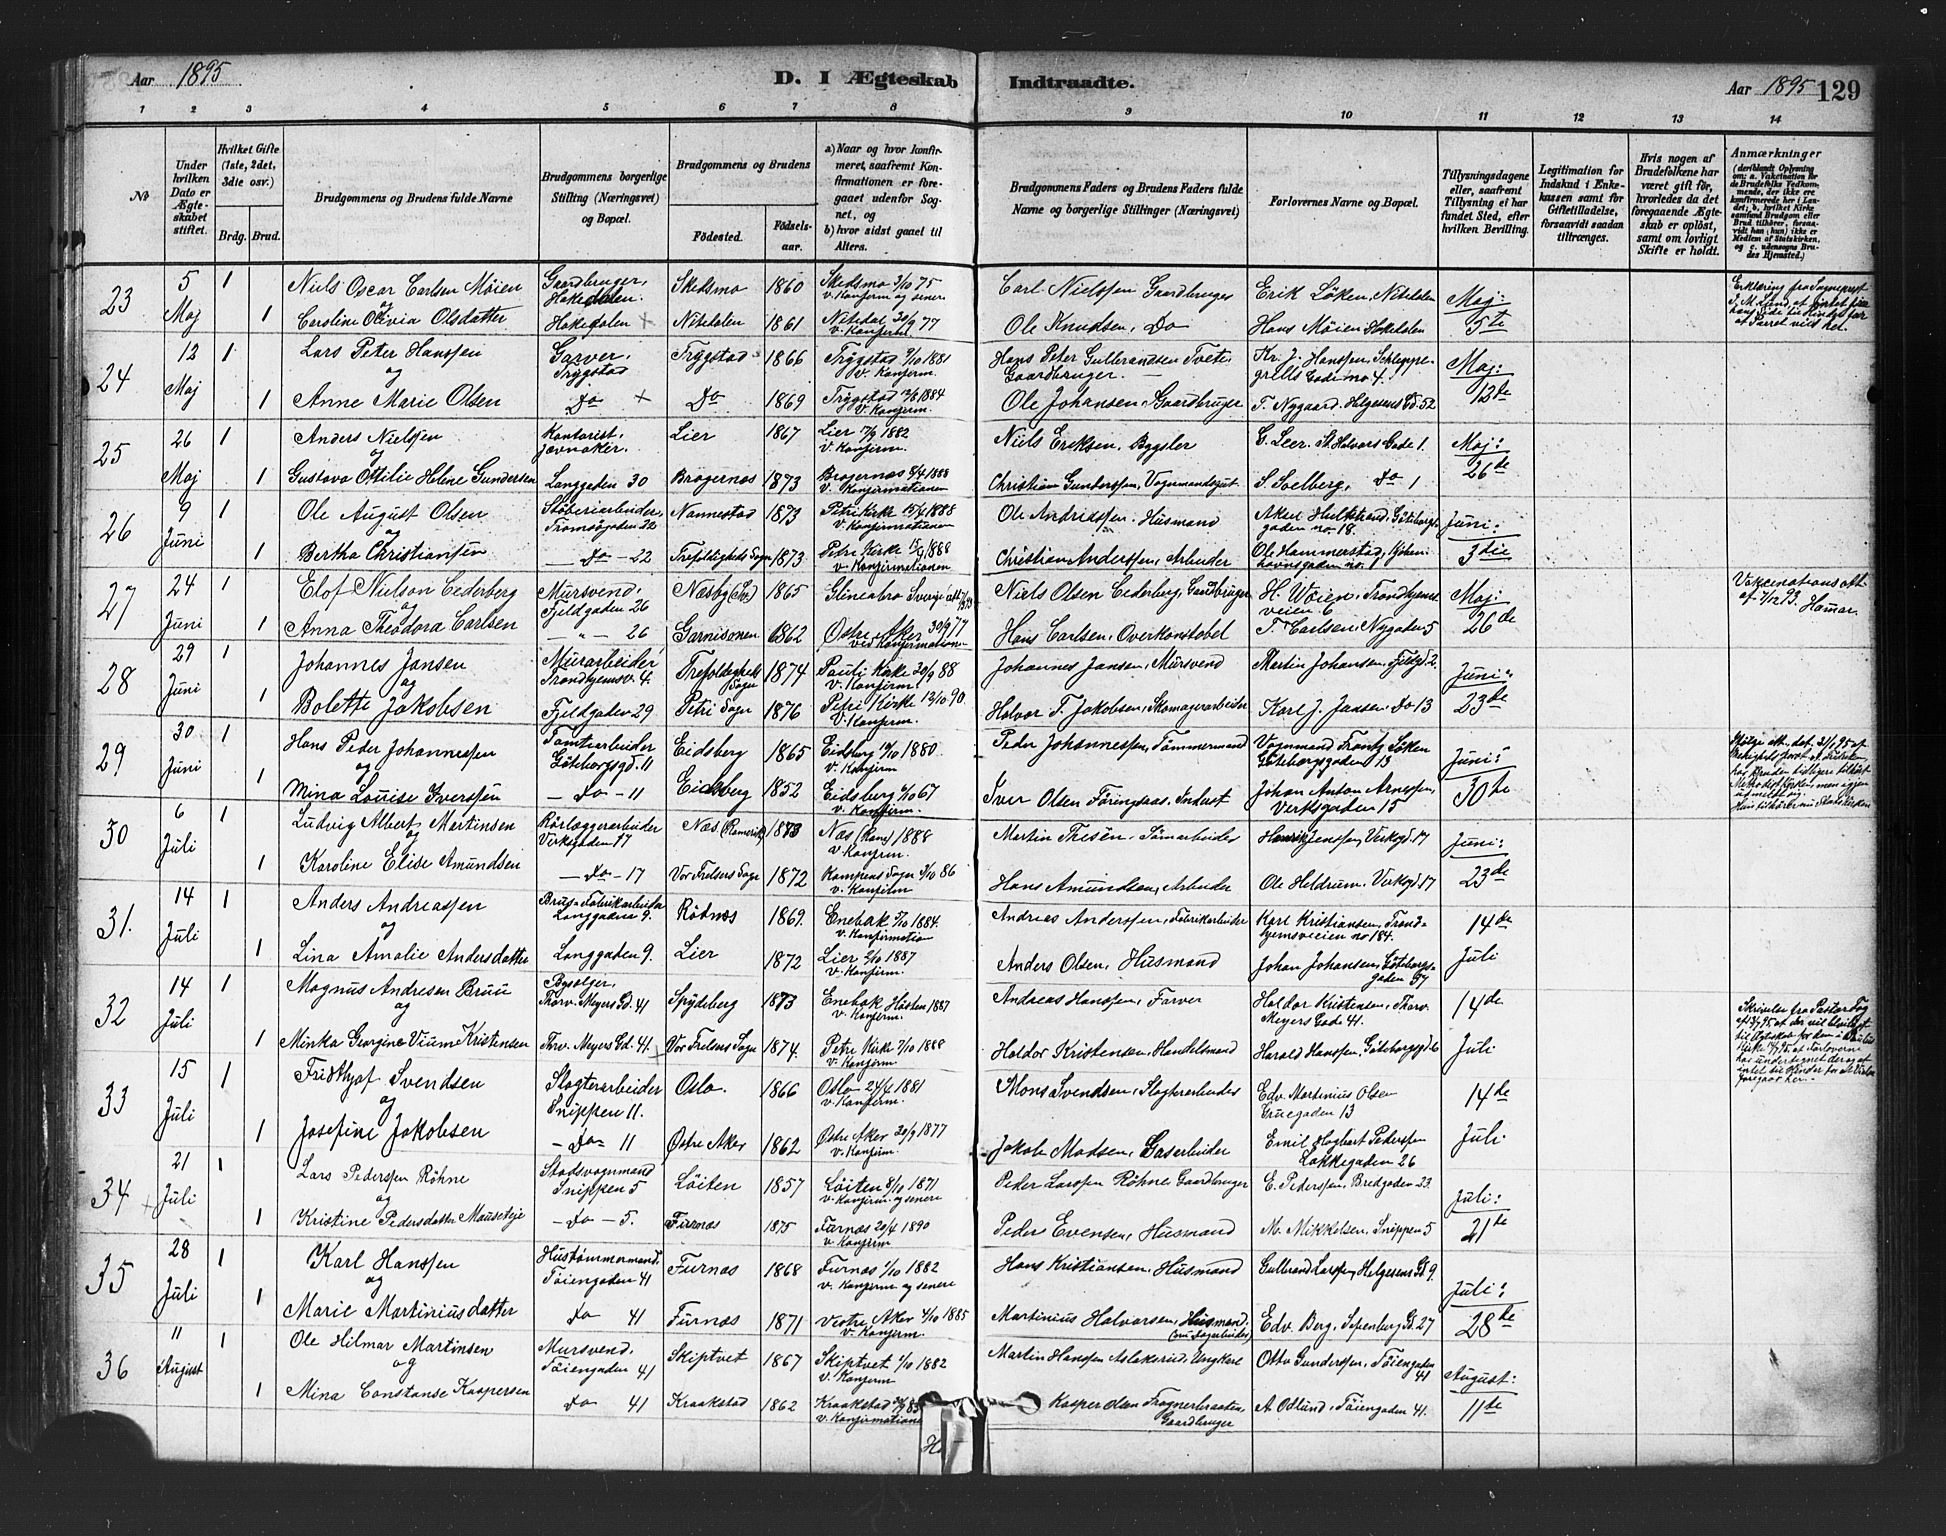 Aar 1895
D. I Ægteskab Indtraadte.
Aar 1895 129
1 2 3 4 5 6 7 8 9 10 11 12 13 14
No
Under hvilken Dato er Ægteskabet stiftet.
Hvilket Gifte (1ste, 2det, 3die osv.)
Brdg. Brud.
Brudgommens og Brudens fulde Navne
Brudgommens borgerlige Stilling (Næringsvei) og Bopæl.
Brudgommens og Brudens
Fødested. Fødselsaar.
a) Naar og hvor konfirmeret, saafremt Konfirmationen er foregaaet udenfor Sognet, og
b) hvor sidst gaaet til Alters.
Brudgommens Faders og Brudens Faders fulde Navne og borgerlige Stillinger (Næringsvei)
Forlovernes Navne og Bopæl.
Tillysningsdagene eller, saafremt Tillysning ei har fundet Sted, efter hvilken Bevilling.
Legitimation for Indskud i Enkekassen samt for Giftetilladelse, forsaavidt saadan tiltrænges.
Hvis nogen af Brudefolkene har været gift før, hvorledes da det foregaaende Ægteskab er opløst, samt om lovligt Skifte er holdt.
Anmærkninger
23 5 Maj 1 Niels Oscar Carlsen Møien Gaardbruger, Hakedalen Skedsmo 1860 Skedsmo 3/10 75 v. Konfirm og senere Carl Nielssen Gaardbruger Erik Løken, Nitedalen Maj: 5te
og
1 Caroline Olivia Olsdatter Hakedalen Nitedalen 1861 Nitedal 30/9 77 v. Konfirm Ole Knudsen, Do Hans Møien Hakedalen
24 12 Maj 1 Lars Peter Hanssen Garver, Trygstad Trygstad 1866 Trygstad 9/10 1881 v. Konfirm. Hans Peter Gulbrandsen Tveter Gaardbruger. Kr. J. Hanssen, Schleppegrells Gade no 4. Maj: 12te
og
1 Anne Marie Olsen Do Do 1869 Trygstad 1884 v. Konfirm. Ole Johansen, Gaardbruger T. Nygaard, Helgesens Gd. 52
25 26 Maj 1 Anders Nielsen Kontorist, Jævnaker. Lier 1867 Lier 1882 v. Konfirm. Niels Eriksen, Bygsler C. Leer. St. Halvors Gade 1. Maj: 26de
og
1 Gustava Ottilie Helene Gundersen Langgaden 30 Bragernæs 1873 Bragernæs 8/4 1888 v. Konfirmationen Christian Gunderssen, Vognmandsgut S. Solberg, Do 1
26 9 Juni 1 Ole August Olsen Støberiarbeider, Tromsøgaden 22 Nannestad 1873 Petri Kirke 15/4 1888 v. Konfirmationen Ole Andriassen, Husmand Gøteborggaden no 18. Juni: 3die
og
1 Bertha Christiansen Do 22 Trefoldigheds Sogn 1873 Petri Kirke 1888 v. Konfirmationen Christian Anderssen, Arbeider Ole Hammerstad,
27 24 Juni 1 Elof Nielson Cederberg Mursvend, Fjeldgaden 26 Næsby (Sv.) 1865 Sverige Niels Olsen Cederberg, Gaardbruger H. Woien, Trondhjemsveien 6 Maj: 26de Vakcinationsatt af 7/12 93. Hamar
og
1 Anna Theodora Carlsen " 26 Garnisonen 1862 Østre Aker 30/9 77 ved Konfirmationen Hans Carlsen, Overkonstabel T. Carlsen, Nygaden 5
28 29 Juni 1 Johannes Jansen Murarbeider Trondhjemsv. 4. Trefoldigheds Sogn 1874 Pauli Kirke 30/9 88 v. Konfirm. Johannes Jansen, Mursvend Martin Johansen, Fjeldgd 2. Juni: 23de
og
1 Bolette Jakobsen Fjeldgaden 29 Petri Sogn 1876 Petri Kirke 12/10 90. v. Konfirm. Halvor T. Jakobsen, Skomagerarbeider Karl J. Jansen, Do 13
29 30 Juni 1 Hans Peder Johannessen Tomtearbeider Gøteborgsgd. 11 Eidsberg 1865 Eidsberg 1880. v. Konfirm Peder Johannessen, Tømmermand Vognmand Frantz Løken Gøteborgsgaden 13 Juni: 30te
og
1 Mina Louise Iverssen Do 11 Eidsberg 1852 Eidsberg 67 v. Konfirm. Iver Olsen Inderst Johan Anton Arnessen, Verksgaden 15
30 6 Juli 1 Ludvig Albert Martinsen Rørlæggerarbeider Verksgaden 17 Næs (Romerik) 1873 Næs (Rom) 1888 v. Konfirm. Martin Henrik Jenssen, Verksgd. 17 Juni: 23de
og
1 Karoline Elise Amundsen Do 17 Vor Frelsers Sogn 1872 Kampens Sogn 3/10 86 v. Konfirm Hans Amundsen, Arbeider Ole Heldrum, Verksgd. 17
31. 14 Juli 1 Anders Andreassen Brus-Fabrikarbeider Langgaden 9. Rødnæs 1869. Enebak 1884. v. Konfirmation Andreas Anderssen, Fabrikarbeider Karl Kristiansen, Trondhjemsveien no 184. 14de Juli
og
1 Lina Amalie Andersdatter Langgaden 9. Lier 1872 Lier 2/10 1887 v. Konfirm. Anders Olsen, Husmand Johan Johansen, Gøteborgsgaden 37
32 14 Juli 1 Magnus Andresen Bruu Thorv. Meyers Gd. 41 Spydeberg 1873 Enebak Høsten 1887 v. Konfirm. Andreas Hanssen, Farver Haldor Kristensen, Thorv. Meyers Gade 41. 14de Juli
og
1 Minka Georgine Vium Kristensen Thv. Meyers Gd. 41. Vor Frelsers Sogn 1874. Petri Kirke 7/10 1888 v. Konfirm. Haldor Kristensen, Handelsmand Harald Hanssen, Gøteborggd 6
33 15 Juli 1 Fridthjof Svendsen Slagterarbeider Snippen 11. Oslo 1866 Oslo 24/4 1881 v. Konfirm. Mons Svendsen, Slagterarbeider Edv. Martinius Olsen Gruegaden 13 14de Juli
og
1 Josefine Jakobsen Do 11 Østre Aker 1862 Østre Aker 30/9 1877 v. Konfirm. Jakob Madsen, Gasarbeider Emil Hagbart Pederssen Lakkegaden 26
34 21 Juli 1 Lars Pederssen Røhne Stadsvognmand Snippen 5 Løiten 1857 Løiten 8/10 1871 v. Konfirm og senere Peder Larssen Røhne Gaardbruger E. Pederssen, Bredgaden 23. Juli: 21te
og
1 Kristine Pedersdatter Mauseteje Do 5. Furnæs 1875 Furnæs 20/4 1890 v. Konfirm Peder Evensen, Husmand M. Mikkelsen, Snippen 5
35 28 Juli 1 Karl Hanssen Hustømmermand, Tøiengaden 41 Furnæs 1868 Furnæs 1/10 1882 v. Konfirm og senere Hans Kristiansen, Husmand Gulbrand Larssen, Helgesens Gd 9. Juli: 28de
og
1 Marie Martiniusdatter Do 41 Furnæs 1871 Vestre Aker 4/10 1885 v. Konfirm. Martinius Halvorsen, Husmand, (nu Dagarbeider) Edv. Berg, Gd. 27
36 11 August 1 Ole Hilmar Martinsen Mursvend, Tøiengaden 41 Skiptvet 1867 Skiptvet 1/10 1882 v. Konfirm Martin Hanssen Aslaksrud, Ungkarl Otto Gunderssen, Tøiengaden 41 August: 11te
og
1 Mina Constanse Kaspersen Do 41 Kraakstad 1862 Kraakstad v. Konfirmationen Kasper Olsen Frognerbraaten, Gaardbruger A. Odlund, Tøiengaden 41.